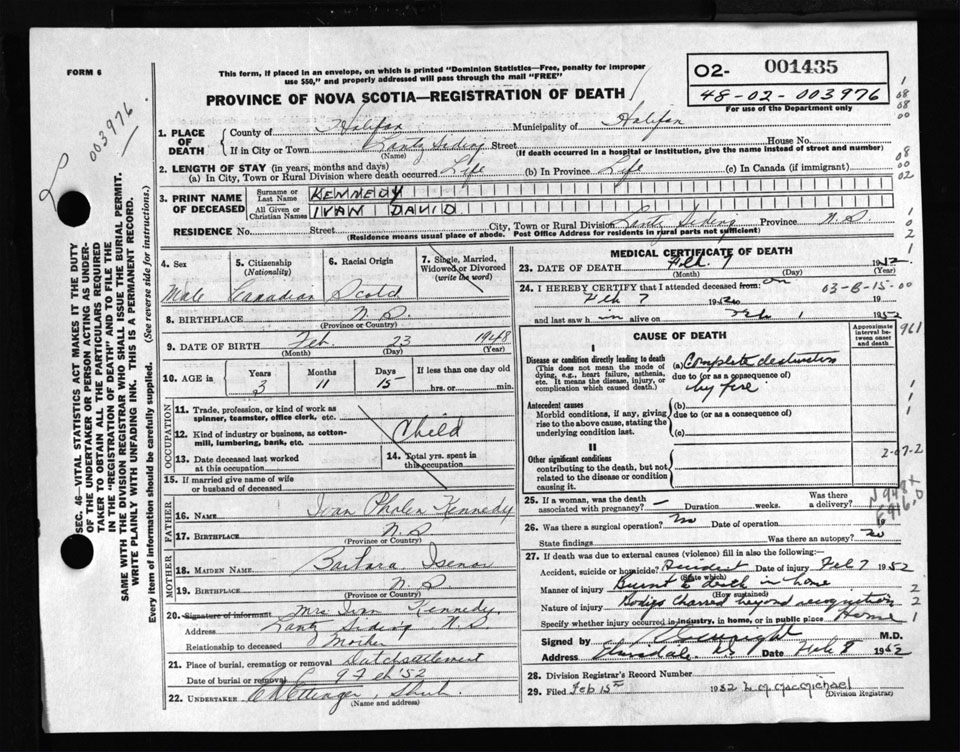 FORM 6
This form, if placed in an envelope, on which is printed "Dominion Statistics—Free, penalty for improper
use $50," and properly addressed will pass through the mail "FREE"
PROVINCE OF NOVA SCOTIA—REGISTRATION OF DEATH
02- 001435
48-02-003976
For use of the Department only
003976
1. PLACE OF DEATH
County of Halifax Municipality of Halifax
If in City or Town Lantz Siding Street House No.
(Name) (If death occurred in a hospital or institution, give the name instead of street and number)
2. LENGTH OF STAY (in years, months and days)
(a) In City, Town or Rural Division where death occurred Life (b) In Province Life (c) In Canada (if immigrant)
3. PRINT NAME OF DECEASED
Surname or Last Name KENNEDY
All Given or Christian Names IVAN DAVID
RESIDENCE No. Street City, Town or Rural Division Lantz Siding Province N.S.
(Residence means usual place of abode. Post Office Address for residents in rural parts not sufficient)
SEC. 46—VITAL STATISTICS ACT MAKES IT THE DUTY
OF THE UNDERTAKER OR PERSON ACTING AS UNDER-
TAKER TO OBTAIN ALL THE PARTICULARS REQUIRED
IN THE "REGISTRATION OF DEATH" AND TO FILE THE
SAME WITH THE DIVISION REGISTRAR WHO SHALL ISSUE THE BURIAL PERMIT.
WRITE PLAINLY WITH UNFADING INK. THIS IS A PERMANENT RECORD.
Every item of information should be carefully supplied. (See reverse side for instructions.)
4. Sex
Male
5. Citizenship
(Nationality)
Canadian
6. Racial Origin
Scotch
7. Single, Married,
Widowed or Divorced
(write the word)
8. BIRTHPLACE N.S.
(Province or Country)
9. DATE OF BIRTH Feb. 23 1948
(Month) (Day) (Year)
10. AGE in Years Months Days If less than one day old
3 11 15 hrs. or min.
OCCUPATION
11. Trade, profession, or kind of work as
spinner, teamster, office clerk, etc.
12. Kind of industry or business, as cotton-
mill, lumbering, bank, etc.
Child
13. Date deceased last worked
at this occupation
14. Total yrs. spent in
this occupation
15. If married give name of wife
or husband of deceased
FATHER
16. Name Ivan Kennedy
17. Birthplace N.S.
(Province or Country)
MOTHER
18. MAIDEN NAME Barbara Isenor
19. BIRTHPLACE N.S.
(Province or Country)
20. Signature of informant Mrs Ivan Kennedy
Address Lantz Siding N.S
Relationship to deceased Mother
21. Place of burial, cremation or removal Dutch settlement
Date of burial or removal 9 Feb '52
22. UNDERTAKER Ettinger, Shub.
(Name and address)
MEDICAL CERTIFICATE OF DEATH
23. DATE OF DEATH Feb 7 1952
(Month) (Day) (Year)
24. I HEREBY CERTIFY that I attended deceased from: on
Feb 7 1952 19
and last saw him alive on Feb 1 1952
03-B-15-00
CAUSE OF DEATH
Approximate
interval between
onset
and death
I
Disease or condition directly leading to death
(This does not mean the mode of
dying, e.g., heart failure, asthenia,
etc. It means the disease, injury, or
complication which caused death.)
(a) Complete destruction
due to (or as a consequence of)
by fire
Antecedent causes
Morbid conditions, if any, giving
rise to the above cause, stating the
underlying condition last.
(b)
due to (or as a consequence of)
(c)
II
Other significant conditions
contributing to the death, but not
related to the disease or condition
causing it.
961
2-07-2
25. If a woman, was the death
associated with pregnancy? — Duration weeks. Was there a delivery?
26. Was there a surgical operation? no Date of operation
State findings Was there an autopsy? no
N948X
E916.0
27. If death was due to external causes (violence) fill in also the following:—
Accident, suicide or homicide? Accident Date of injury Feb 7 1952
(State which)
Manner of injury Burnt to death in home
(How sustained)
Nature of injury Bodies charred beyond recognition
Specify whether injury occurred in industry, in home, or in public place Home
Signed by M.D.
Address Elmsdale, NS Date Feb 8 1952
28. Division Registrar's Record Number
29. Filed Feb 15th 1952 L. M. MacMichael
(Division Registrar)